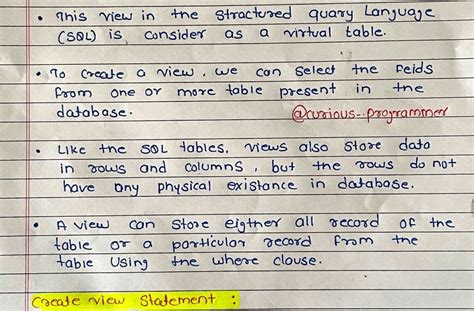 • This view in the structured quary Language
(SQL) is consider as a virtual table.
• To create a view, we can select the feids
from one or more table present in the
database.
@curious_programmer
• Like the SQL tables, views also store data
in rows and columns, but the rows do not
have any physical existance in database.
• A view can store eigther all record of the
table or a particular record from the
table using the where clouse.
Create view Statement :